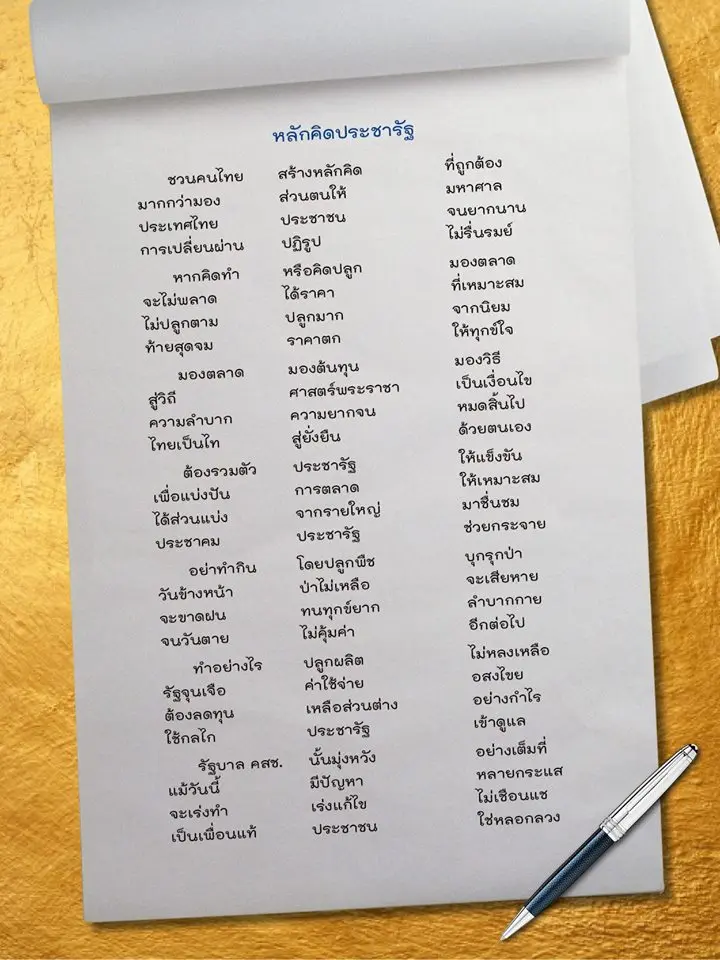 หลักคิดประชารัฐ
ชวนคนไทย สร้างหลักคิด ที่ถูกต้อง
มากกว่ามอง ส่วนตนให้ มหาศาล
ประเทศไทย ประชาชน จนยากนาน
การเปลี่ยนผ่าน ปฏิรูป ไม่รื่นรมย์
หากคิดทำ หรือคิดปลูก มองตลาด
จะไม่พลาด ได้ราคา ที่เหมาะสม
ไม่ปลูกตาม ปลูกมาก จากนิยม
ท้ายสุดจม ราคาตก ให้ทุกข์ใจ
มองตลาด มองต้นทุน มองวิธี
สู่วิถี ศาสตร์พระราชา เป็นเงื่อนไข
ความลำบาก ความยากจน หมดสิ้นไป
ไทยเป็นไท สู่ยั่งยืน ด้วยตนเอง
ต้องรวมตัว ประชารัฐ ให้แข็งขัน
เพื่อแบ่งปัน การตลาด ให้เหมาะสม
ได้ส่วนแบ่ง จากรายใหญ่ มาชื่นชม
ประชาคม ประชารัฐ ช่วยกระจาย
อย่าทำกิน โดยปลูกพืช บุกรุกป่า
วันข้างหน้า ป่าไม่เหลือ จะเสียหาย
จะขาดฝน ทนทุกข์ยาก ลำบากกาย
จนวันตาย ไม่คุ้มค่า อีกต่อไป
ทำอย่างไร ปลูกผลิต ไม่หลงเหลือ
รัฐจุนเจือ ค่าใช้จ่าย อสงไขย
ต้องลดทุน เหลือส่วนต่าง อย่างกำไร
ใช้กลไก ประชารัฐ เข้าดูแล
รัฐบาล คสช. นั้นมุ่งหวัง อย่างเต็มที่
แม้วันนี้ มีปัญหา หลายกระแส
จะเร่งทำ เร่งแก้ไข ไม่เชือนแช
เป็นเพื่อนแท้ ประชาชน ใช่หลอกลวง